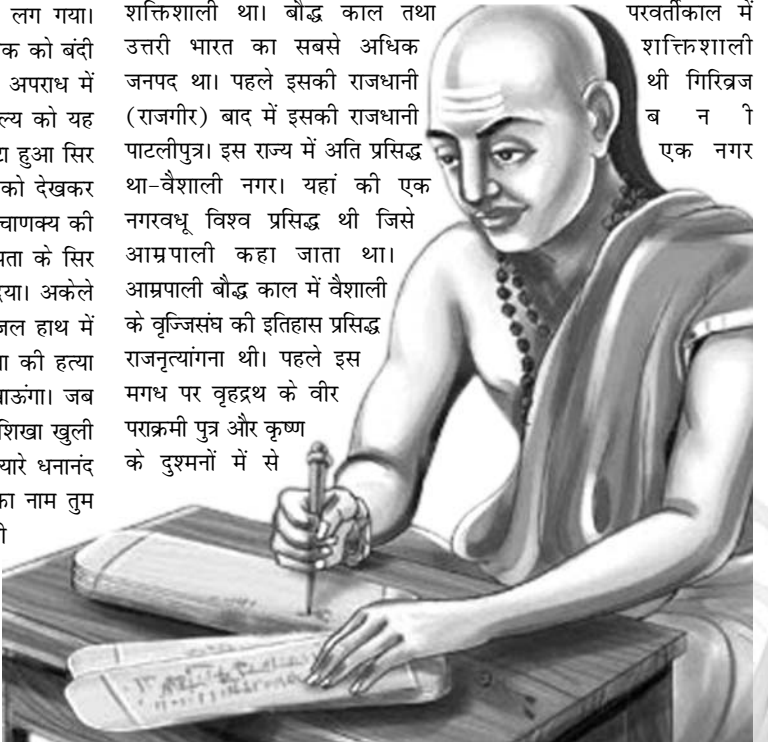 लग गया।
क को बंदी
अपराध में
ल्य को यह
टा हुआ सिर
को देखकर
चाणक्य की
ता के सिर
या। अकेले
जल हाथ में
की हत्या
ऊंगा। जब
शिखा खुली
यारे धनानंद
का नाम तुम
शक्तिशाली था। बौद्ध काल तथा परवर्तीकाल में
उत्तरी भारत का सबसे अधिक शक्तिशाली
जनपद था। पहले इसकी राजधानी थी गिरिव्रज
(राजगीर) बाद में इसकी राजधानी ब न ी
पाटलीपुत्र। इस राज्य में अति प्रसिद्ध एक नगर
था-वैशाली नगर। यहां की एक
नगरवधू विश्व प्रसिद्ध थी जिसे
आम्रपाली कहा जाता था।
आम्रपाली बौद्ध काल में वैशाली
के वृज्जिसंघ की इतिहास प्रसिद्ध
राजनृत्यांगना थी। पहले इस
मगध पर वृहद्रथ के वीर
पराक्रमी पुत्र और कृष्ण
के दुश्मनों में से